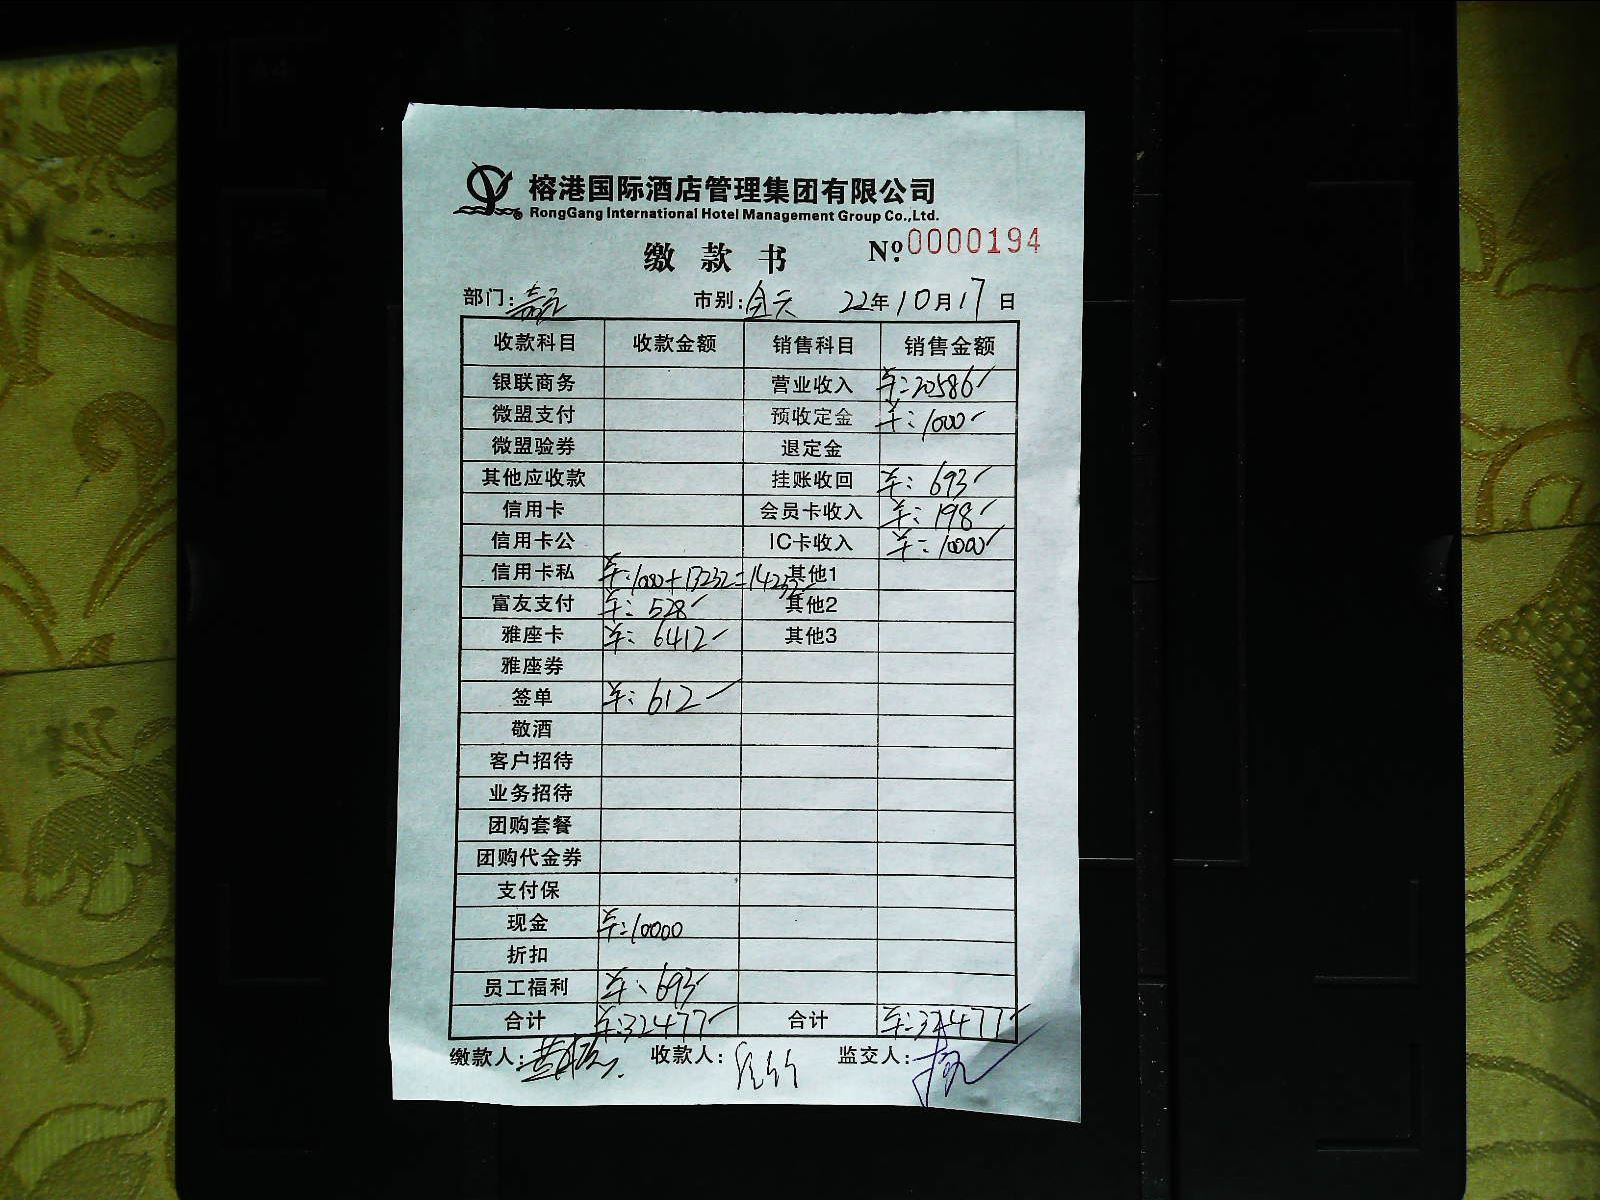 榕港国际酒店管理集团有限公司
RongGang International Hotel Management Group Co.,Ltd.
缴款书 Nº:0000194
部门: 市别:全天 22年10月17日
收款科目 收款金额 销售科目 销售金额
银联商务 营业收入 卡:20586
微盟支付 预收定金 卡:1000
微盟验券 退定金
其他应收款 挂账收回 卡:693
信用卡 会员卡收入 卡:198
信用卡公 IC卡收入 卡:10000
信用卡私 卡:1000+13232=14232 其他1
富友支付 卡:528 其他2
雅座卡 卡:6412 其他3
雅座券
签单 卡:612
敬酒
客户招待
业务招待
团购套餐
团购代金券
支付保
现金 卡:10000
折扣
员工福利 卡:693
合计 卡:32477 合计 卡:32477
缴款人: 收款人: 监交人: